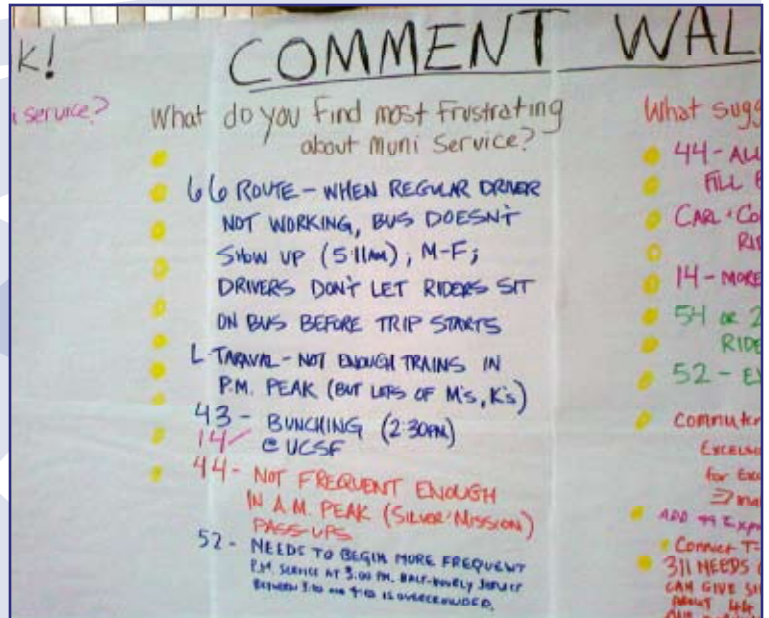 K!
COMMENT WAL
service?
What do you find most frustrating
about Muni Service?
66 ROUTE - WHEN REGULAR DRIVER
NOT WORKING, BUS DOESN'T
SHOW UP (5:11AM), M-F;
DRIVERS DON'T LET RIDERS SIT
ON BUS BEFORE TRIP STARTS
L-TARAVAL - NOT ENOUGH TRAINS IN
P.M. PEAK (BUT LOTS OF M's, K's)
43 - BUNCHING (2:30PM)
14 @ UCSF
44 - NOT FREQUENT ENOUGH
IN A.M. PEAK (SILVER/MISSION)
PASS-UPS
52 - NEEDS TO BEGIN MORE FREQUENT
P.M. SERVICE AT 3:00 PM. HALF-HOURLY SERVICE
BETWEEN 3:00 AND IS OVERCROWDED.
What sugg
44 - ALL
FILL
CARL + CO
RID
14 - MORE
54 or 2
RIDE
52 - EX
Commuter
EXCELSIO
for Exc
ADD 49 Exp
Connect T-
311 NEEDS
CAN GIVE
ABOUT 44